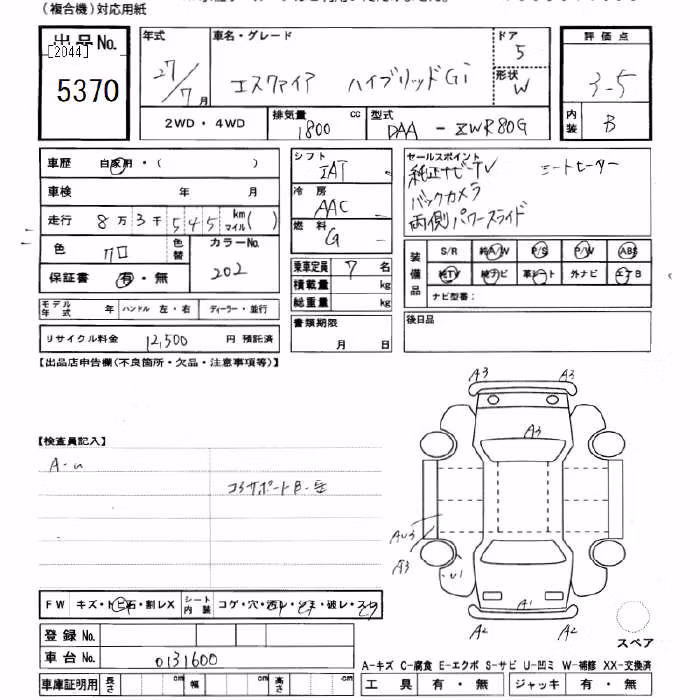 (複合機)対応用紙
出品No.
[2044]
5370
年式
27/7月
車名・グレード
エスクァイア ハイブリッドGi
ドア
5
形状
W
評価点
3-5
内装
B
2WD・4WD
排気量 1800 cc
型式 DAA-ZWR80G
車歴 自家用・( )
車検 年 月
走行 8万3千545 km マイル( )
色 クロ
色替
カラーNo. 202
保証書 有・無
モデル年式 年 ハンドル 左・右 ディーラー・並行
リサイクル料金 12,500 円 預託済
シフト IAT
冷房 AAC
燃料 G
乗車定員 7 名
積載量 kg
総重量 kg
書類期限
月 日
セールスポイント
純正ナビ-TV シートヒーター
バックカメラ
両側パワースライド
装備品
S/R 純A/W P/S P/W ABS
純TV 純ナビ 革シート 外ナビ エアB
ナビ型番:
後日品
【出品店申告欄(不良箇所・欠品・注意事項等)】
【検査員記入】
A-u
コアサポート
A3 A3
A3
AU3
A3
U1
A1
A2 A2
スペア
FW キズ・トビ石・割レX
シート内装 コゲ・穴・汚レ・シミ・破レ・スレ
登録No.
車台No. 0131600
車庫証明用 長さ cm 幅 cm 高さ cm
A-キズ C-腐食 E-エクボ S-サビ U-凹ミ W-補修 XX-交換済
工具 有・無 ジャッキ 有・無